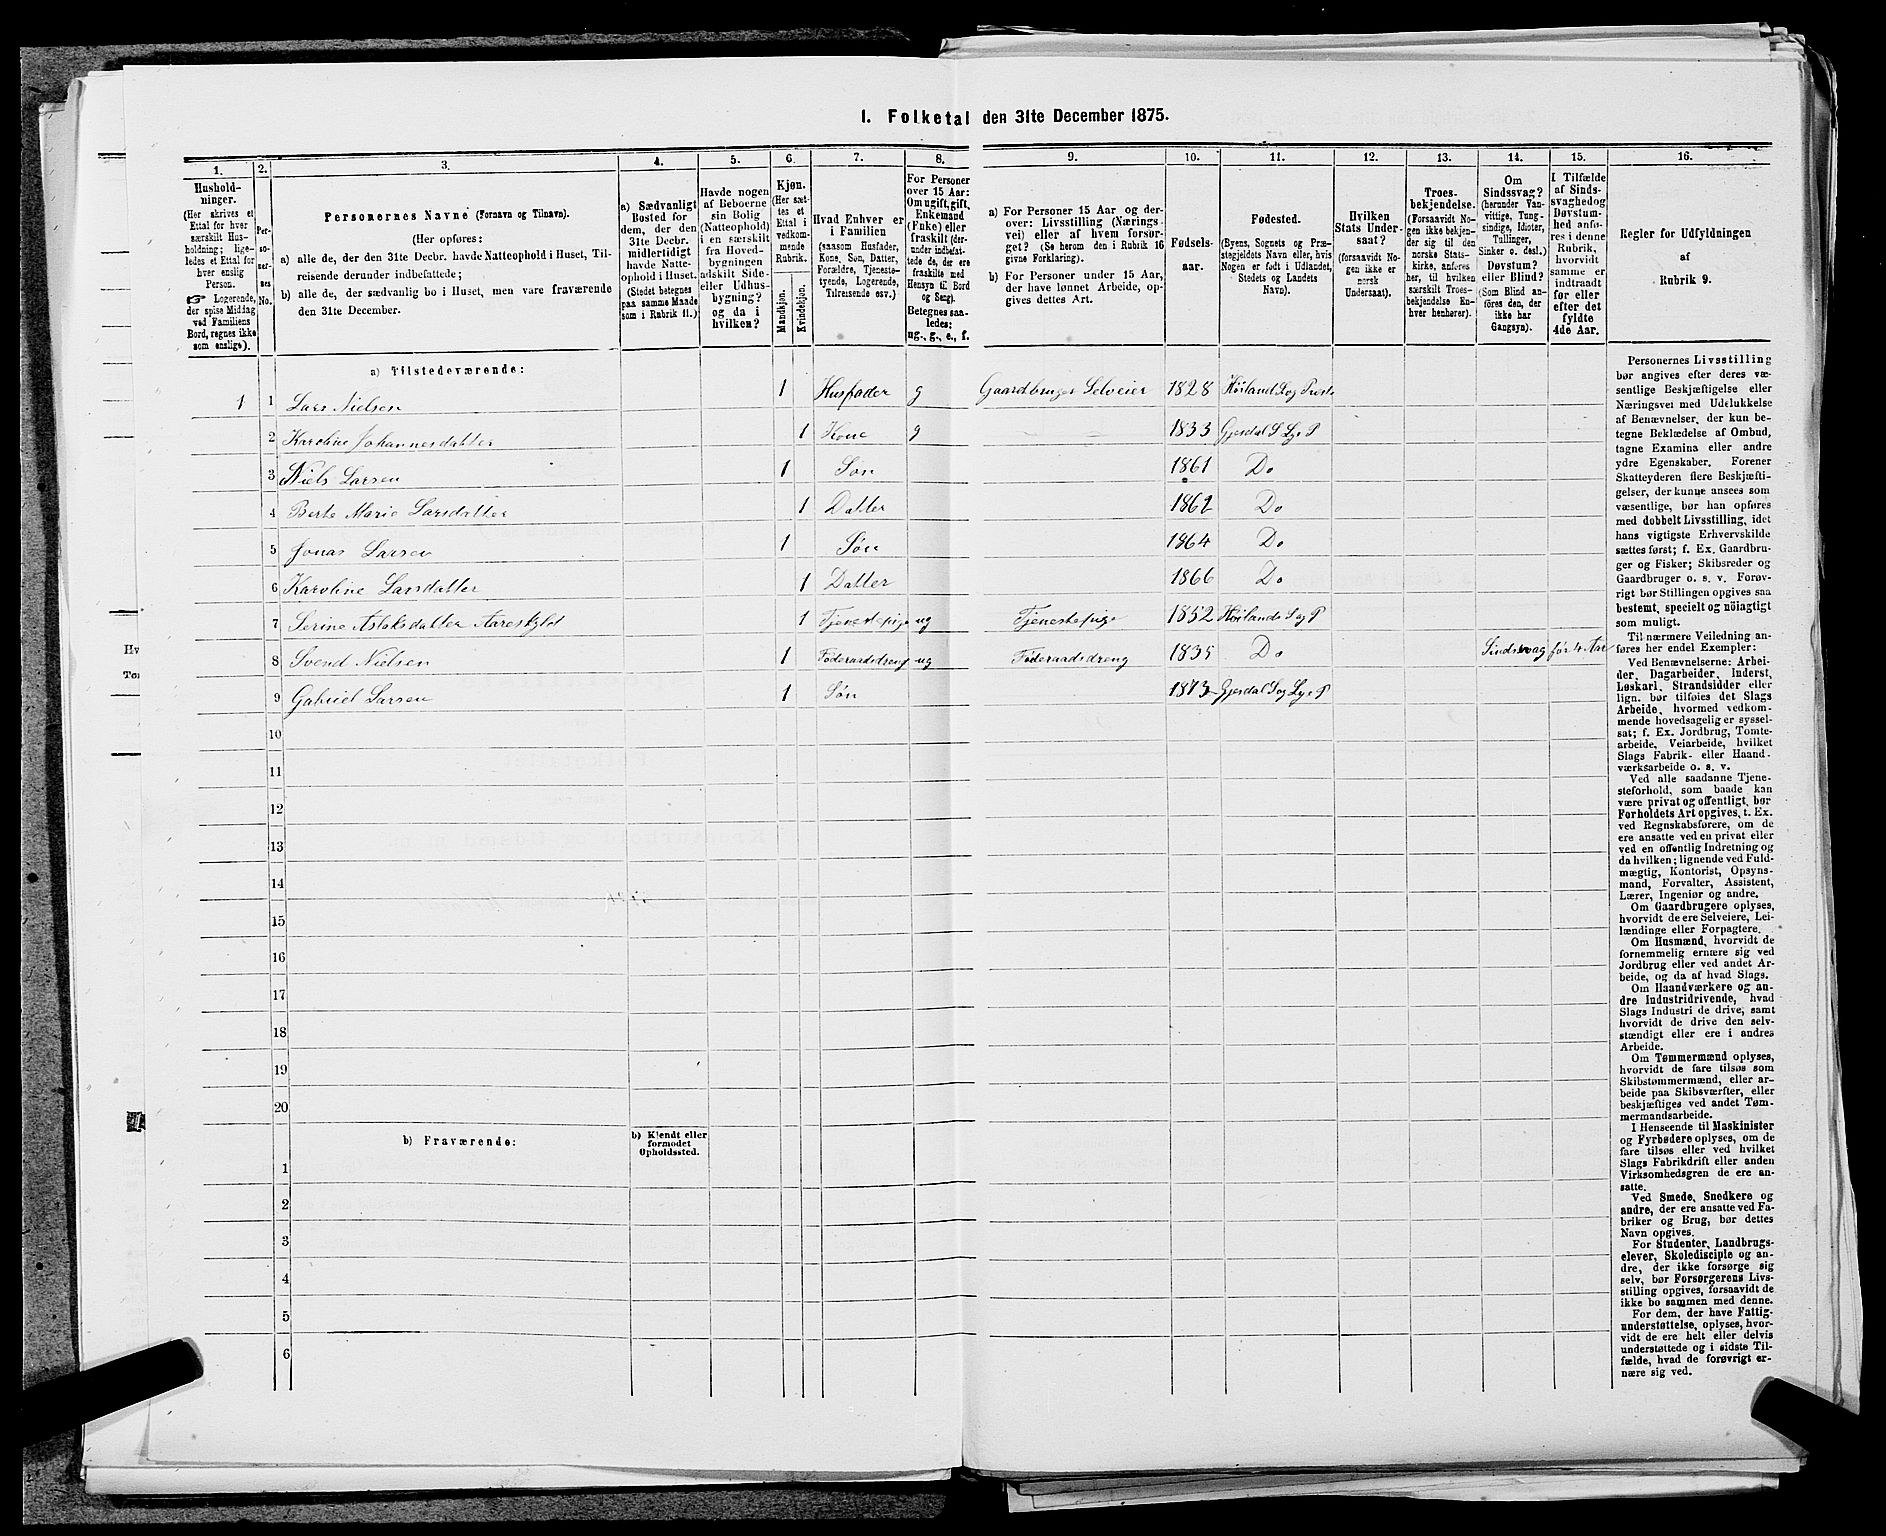 I. Folketal den 31te December 1875.
1.
2.
3.
4.
5.
6.
7.
8.
9.
10.
11.
12.
13.
14.
15.
16.
Hushold-
ninger.
(Her skrives et
Ettal for hver
særskilt Hus-
holdning; lige-
ledes et Ettal for
hver enslig
Person.
☞ Logerende,
der spise Middag
ved Familiens
Bord, regnes ikke
som enslige).
Per-
so-
ner-
nes
No.
Personernes Navne (Fornavn og Tilnavn).
(Her opføres:
a) alle de, der den 31te Decbr. havde Natteophold i Huset, Til-
reisende derunder indbefattede;
b) alle de, der sædvanlig bo i Huset, men vare fraværende
den 31te December.
a) Sædvanligt
Bosted for
dem, der den
31te Decbr.
midlertidigt
havde Natte-
ophold i Huset.
(Stedet betegnes
paa samme Maade
som i Rubrik 11.)
Havde nogen
af Beboerne
sin Bolig
(Natteophold)
i en særskilt
fra Hoved-
bygningen
adskilt Side-
eller Udhus-
bygning?
og da i
hvilken?
Kjøn.
(Her sæt-
tes et
Ettal i
vedkom-
mende
Rubrik.
Mandkjøn.
Kvindekjøn.
Hvad Enhver er
i Familien
(saasom Husfader,
Kone, Søn, Datter,
Forældre, Tjeneste-
tyende, Logerende,
Tilreisende osv.)
For Personer
over 15 Aar:
Om ugift, gift,
Enkemand
(Enke) eller
fraskilt (der-
under indbefat-
tede de, der ere
fraskilte med
Hensyn til Bord
og Seng).
Betegnes saa-
ledes:
ug., g., e., f.
a) For Personer 15 Aar og der-
over: Livsstilling (Nærings-
vei) eller af hvem forsør-
get? (Se herom den i Rubrik 16
givne Forklaring).
b) For Personer under 15 Aar,
der have lønnet Arbeide, op-
gives dettes Art.
Fødsels-
aar.
Fødested.
(Byens, Sognets og Præ-
stegjeldets Navn eller, hvis
Nogen er født i Udlandet,
Stedets og Landets
Navn).
Hvilken
Stats Under-
saat?
(forsaavidt No-
gen ikke er
norsk
Undersaat).
Troes-
bekjendelse.
(Forsaavidt No-
gen ikke bekjen-
der sig til den
norske Stats-
kirke, anføres
her, til hvilken
særskilt Troes-
bekjendelse En-
hver henhører).
Om
Sindssvag?
(herunder Van-
vittige, Tung-
sindige, Idioter,
Tullinger,
Sinker o. desl.)
Døvstum?
eller Blind?
(Som Blind an-
føres den, der
ikke har
Gangsyn).
I Tilfælde
af Sinds-
svaghed og
Døvstum-
hed anfø-
res i denne
Rubrik,
hvorvidt
samme er
indtraadt
før eller
efter det
fyldte
4de Aar.
Regler for Udfyldningen
af
Rubrik 9.
a) Tilstedeværende:
1 1 Lars Nielsen 1 Husfader g Gaardbruger Selveier 1828
2 Karoline Johannesdatter 1 Kone g 1833
3 Niels Larsen 1 Søn 1861 Do
4 Berte Marie Larsdatter 1 Datter 1862 Do
5 Jonas Larsen 1 Søn 1864 Do
6 Karoline Larsdatter 1 Datter 1866 Do
7 Serine Aslaksdatter 1 Tjenestepige ug Tjenestepige 1852 Høilands S og P
8 Svend Nielsen 1 Føderaadsdreng ug Føderaadsdreng 1835 Do Sindssvag før 4 Aar
9 Gabriel Larsen 1 Søn 1873 Gjesdal S og Ly P
10
11
12
13
14
15
16
17
18
19
20
b) Fraværende:
b) Kjendt eller
formodet
Opholdssted.
1
2
3
4
5
6
Personernes Livsstilling
bør angives efter deres væ-
sentlige Beskjæftigelse eller
Næringsvei med Udelukkelse
af Benævnelser, der kun be-
tegne Beklædelse af Ombud,
tagne Examina eller andre
ydre Egenskaber. Forener
Skatteyderen flere Beskjæfti-
gelser, der kunne ansees som
væsentlige, bør han opføres
med dobbelt Livsstilling, idet
hans vigtigste Erhvervskilde
sættes først; f. Ex. Gaardbru-
ger og Fisker; Skibsreder og
Gaardbruger o. s. v. Forøv-
rigt bør Stillingen opgives saa
bestemt, specielt og nöiagtigt
som muligt.
Til nærmere Veiledning an-
føres her endel Exempler:
Ved Benævnelserne: Arbei-
der, Dagarbeider, Inderst,
Løskarl, Strandsidder eller
lign. bør tilføies det Slags
Arbeide, hvormed vedkom-
mende hovedsagelig er syssel-
sat; f. Ex. Jordbrug, Tomte-
arbeide, Veiarbeide, hvilket
Slags Fabrik- eller Haand-
værksarbeide o. s. v.
Ved alle saadanne Tjene-
steforhold, som baade kan
være privat og offentligt, bør
Forholdets Art opgives, t. Ex.
ved Regnskabsførere, om de
ere ansatte ved en privat eller
ved en offentlig Indretning og
da hvilken; lignende ved Fuld-
mægtig, Kontorist, Opsyns-
mand, Forvalter, Assistent,
Lærer, Ingeniør og andre.
Om Gaardbrugere oplyses,
hvorvidt de ere Selveiere, Lei-
lændinge eller Forpagtere.
Om Husmænd, hvorvidt de
fornemmelig ernære sig ved
Jordbrug eller ved andet Ar-
beide, og da af hvad Slags.
Om Haandværkere og an-
dre Industridrivende, hvad
Slags Industri de drive, samt
hvorvidt de drive den selv-
stændigt eller ere i andres
Arbeide.
Om Tømmermænd oplyses,
hvorvidt de fare tilsøs som
Skibstømmermænd, eller ar-
beide paa Skibsværfter, eller
beskjæftiges ved andet Tøm-
mermandsarbeide.
I Henseende til Maskinister
og Fyrbødere oplyses, om de
fare tilsøs eller ved hvilket
Slags Fabrikdrift eller anden
Virksomhedsgren de ere an-
satte.
Ved Smede, Snedkere og
andre, der ere ansatte ved Fa-
briker og Brug, bør dettes
Navn opgives.
For Studenter, Landbrugs-
elever, Skoledisciple og an-
dre, der ikke forsørge sig
selv, bør Forsørgerens Livs-
stilling opgives, forsaavidt de
ikke bo sammen med denne.
For dem, der have Fattig-
understøttelse, oplyses, hvor-
vidt de ere helt eller delvis
understøttede og i sidste Til-
fælde, hvad de forøvrigt er-
nære sig ved.